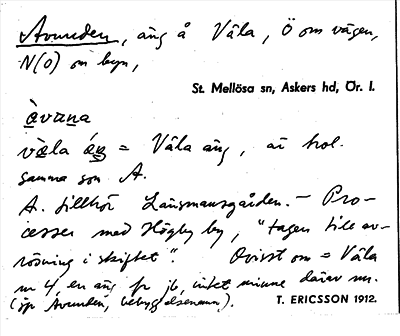 Avunden, äng å Våla, Ö om vägen,
N(O) om byn,
St. Mellösa sn, Askers hd, Ör. l.
àvu̱na
vè̱la áŋ = Våla äng, är trol.
samma som A.
A. tillhör Länsmansgården. — Pro-
cesser med Högby by, "tagen till av-
rösning i skiftet". Ovisst om = Våla
nr 4, en äng fr jb, intet minne därav nu.
(jp Avunden, bebyggelsenamn).
T. ERICSSON 1912.